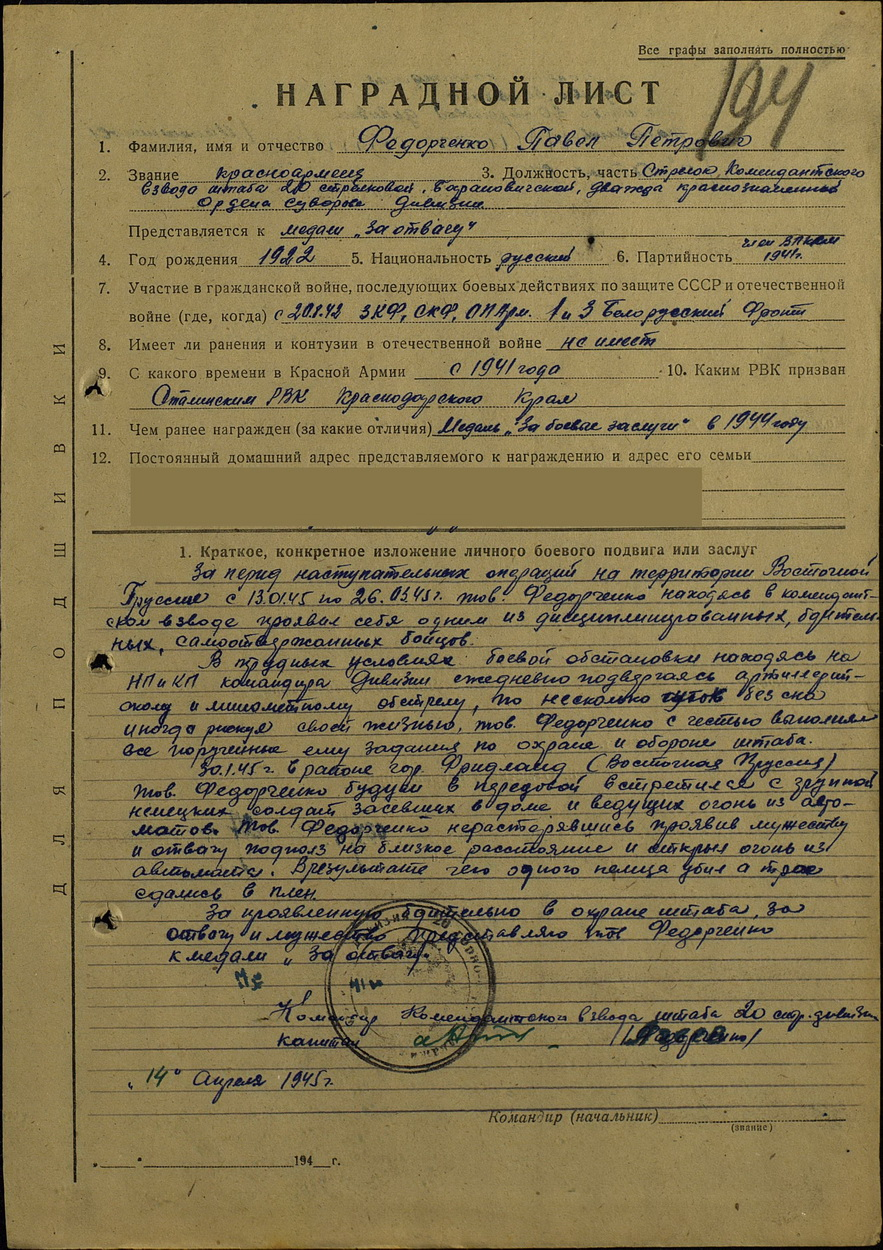 Все графы заполнять полностью
194
НАГРАДНОЙ ЛИСТ
1. Фамилия, имя и отчество Федорченко Павел Петрович
2. Звание красноармеец 3. Должность, часть Стрелок, Комендантского
взвода штаба 20 стрелковой, Барановичской, дважда краснознаменной
Ордена Суворова Дивизии
Представляется к медали „За отвагу"
4. Год рождения 1922 5. Национальность русский 6. Партийность член ВЛКСМ
1941г.
7. Участие в гражданской войне, последующих боевых действиях по защите СССР и отечественной
войне (где, когда) с 20.1.42 ЗКФ, СКФ, ОПАрм. 1 и 3 Белорусский Фронт
8. Имеет ли ранения и контузии в отечественной войне не имеет
9. С какого времени в Красной Армии с 1941 года 10. Каким РВК призван
Сталинским РВК Краснодарского Края
11. Чем ранее награжден (за какие отличия) Медаль „За боевые заслуги" в 1944 году
12. Постоянный домашний адрес представляемого к награждению и адрес его семьи
ДЛЯ ПОДШИВКИ
1. Краткое, конкретное изложение личного боевого подвига или заслуг
За период наступательных операций на территории Восточной
Пруссии с 13.01.45 по 26.03.45г. тов. Федорченко находясь в комендант-
ском взводе проявил себя одним из дисциплинированных, бдитель-
ных, самоотверженных бойцов.
В трудных условиях боевой обстановки находясь на
НП и КП командира Дивизии ежедневно подвергаясь артиллерий-
скому и минометному обстрелу, по несколько суток без сна
иногда рискуя своей жизнью, тов. Федорченко с честью выполнял
все порученные ему задания по охране и обороне штаба.
30.1.45г. в районе гор. Фридланд (Восточная Пруссия)
тов. Федорченко будучи в передовой встретился с группой
немецких солдат засевших в доме и ведущих огонь из авто-
матов. Тов. Федорченко нерастерявшись проявив мужество
и отвагу подполз на близкое расстояние и открыл огонь из
автомата. В результате чего одного немца убил а трое
сдались в плен.
За проявленную бдительно в охране штаба, за
отвагу и мужество представляю тов Федорченко
к медали „За отвагу"
Командир Комендантского взвода штаба 20 стр. дивизии
капитан
„14" Апреля 1945г.
Командир (начальник)
(звание)
„ " 194 г.